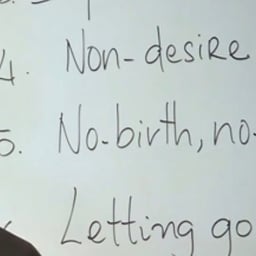 4. Non-desire
5. No-birth, no-
Letting go